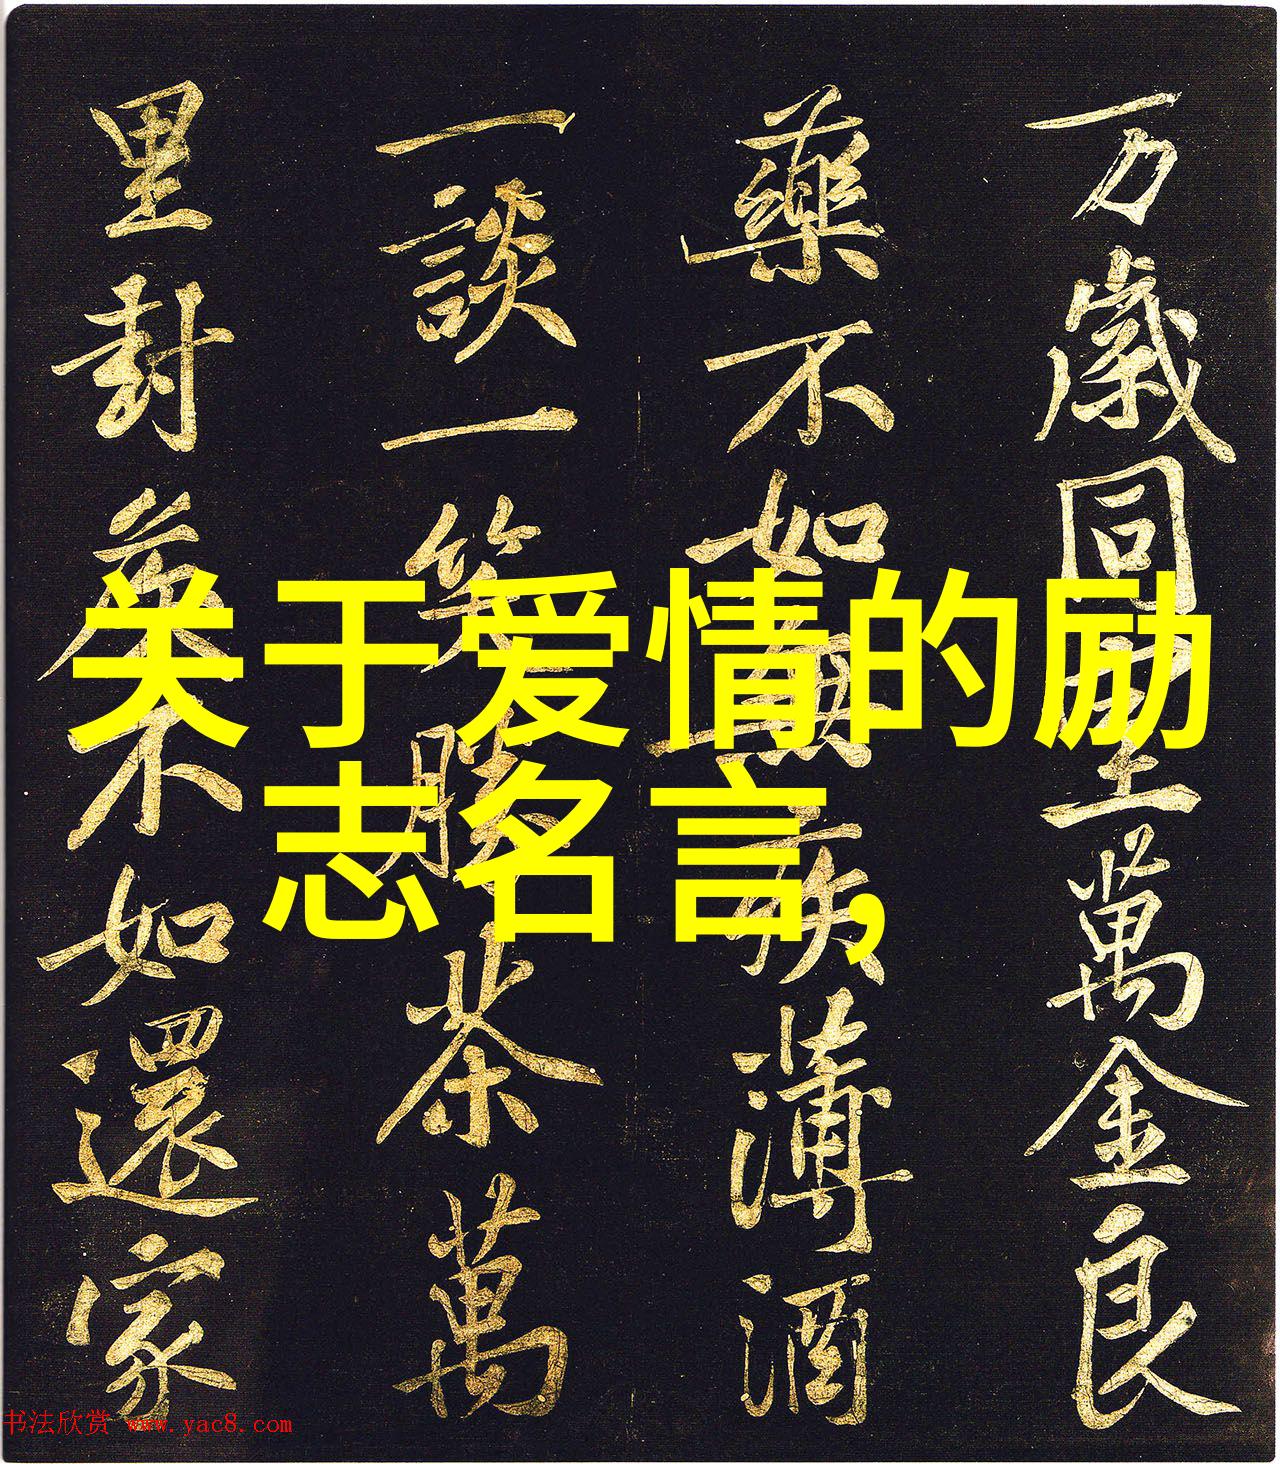 关于爱情的励
志名言,
万歲同室萬金良
藥不如無疾薄酒
一談一笑勝茶萬
里封侯不如還家
书法欣赏 www.yac8.com